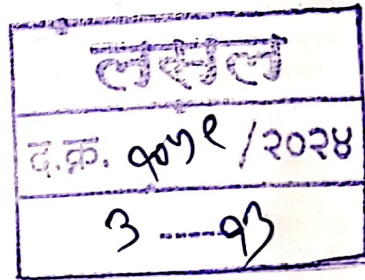 लसल
द.क्र. १०५९ /२०२४
३ ---- १३